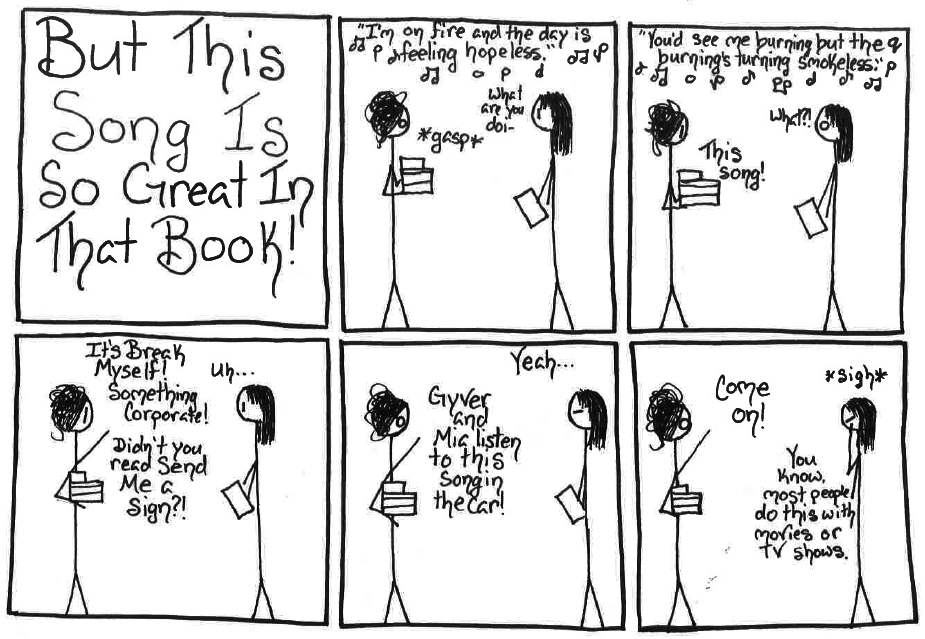 But This
Song Is
So Great In
That Book!
"I'm on fire and the day is
feeling hopeless."
What
are you
doi-
*gasp*
"You'd see me burning but the
burning's turning smokeless."
What?!
This
song!
It's Break
Myself!
Something
Corporate!
Didn't you
read Send
Me a
Sign?!
Uh...
Yeah...
Gyver
and
Mia listen
to this
song in
the car!
Come
on!
*sigh*
You
know,
most people
do this with
movies or
TV shows.